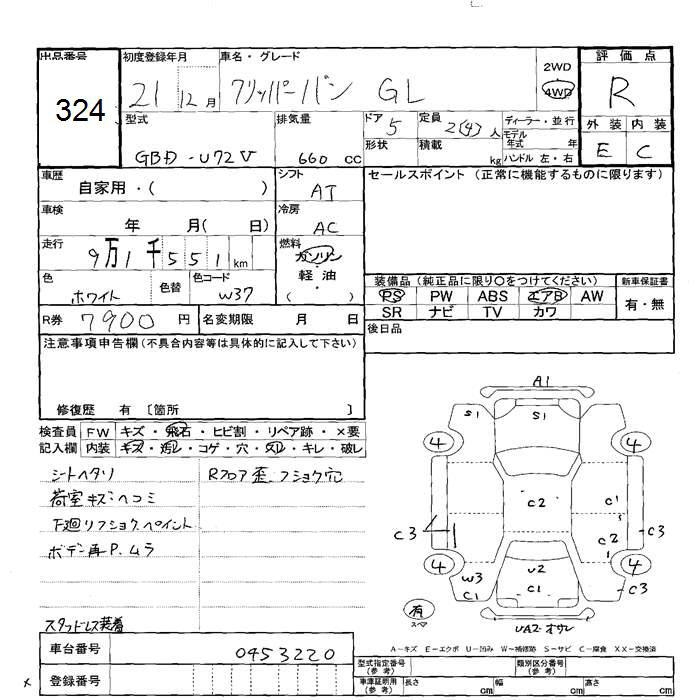 出品番号
324
初度登録年月
21 12月
車名・グレード
クリッパーバン GL
2WD
4WD
評価点
R
外装 内装
E C
型式
GBD-U72V
排気量
660 cc
ドア
5
形状
定員
2(4)人
積載
kg
ディーラー・並行
モデル年式 年
ハンドル 左・右
車歴
自家用・( )
シフト
AT
セールスポイント (正常に機能するものに限ります)
車検
年 月( 日)
冷房
AC
走行
9万1千551km
燃料
ガソリン
・
軽油
( )
色
ホワイト
色替
色コード
W37
装備品 (純正品に限り○をつけてください)
PS PW ABS エアB AW
SR ナビ TV カワ
新車保証書
有・無
R券 7900円
名変期限 月 日
後日品
注意事項申告欄(不具合内容等は具体的に記入して下さい)
修復歴 有 〔箇所 〕
検査員
記入欄
FW キズ・飛石・ヒビ割・リペア跡・×要
内装 キズ・汚レ・コゲ・穴・スレ・キレ・破レ
シートヘタリ
荷室キズ・ヘコミ
下廻リフショク、ペイント
ボデー再P.ムラ
スタッドレス装着
Rフロア歪・フショク穴
A1
S1 S1
4 4
C2 C1
C3 C2 C3
4 4
W3 U2
C1 C1 C3
有
スペア
UA2・オサレ
A-キズ E-エクボ U-凹み W-補修跡 S-サビ C-腐食 XX-交換済
車台番号
0453220
登録番号
×
型式指定番号
(参考)
類別区分番号
(参考)
車庫証明用
(参考)
長さ cm
幅 cm
高さ cm